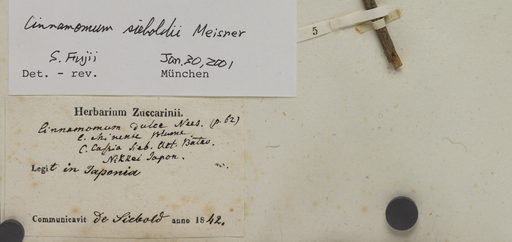 Cinnamomum sieboldii Meisner
S. Fujii Jan. 20, 2001
Det. - rev. München
5
Herbarium Zuccarinii.
Cinnamomum dulce Nees. (p. 62)
C. chinense Blume
C. Cassia Sieb. Batav.
Nikkei Japon.
Legit in Japonia
Communicavit de Siebold anno 1842.